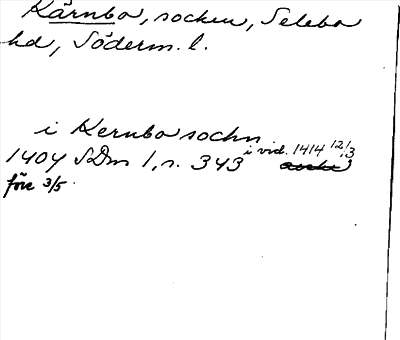 Kärnbo, socken, Selebo
hd, Söderm. l.
i Kernbo sochn
1404 SDns 1, s. 343 i vid. 1414 12/3
före 3/5.